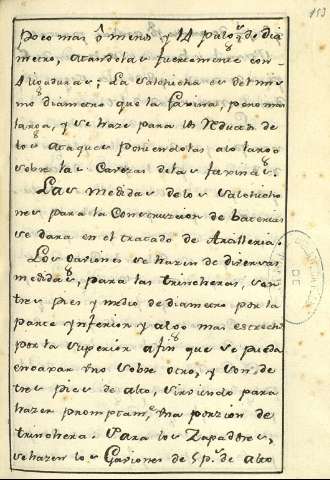 153
poco mas ô menos y 14 pulg.s de dia
metro, atandolas fuercemente con
4 ligaduras; La salchicha es del mis
mo diametro que la faxina, pero mas
larga, y se haze para la de
los ataques poniendolas alo largo
sobre las Cavezas delas faxinas.
Las medidas de los Salchicho
nes para la Construczion de baterias
se dara en el tratado de Artilleria.
Los Gaviones se hazen de diversas
medidas, para las trincheras, son
tres pies y medio de diametro por la
parte ynferior y algo mas estrecho
por la superior afin que se pueda
encaxar uno sobre otro, y son de
tres pies de alto, sirviendo para
hazer promptam.te una porzion de
trinchera. Para los Zapadores,
se hazen los Gaviones de 5 p.s de alto